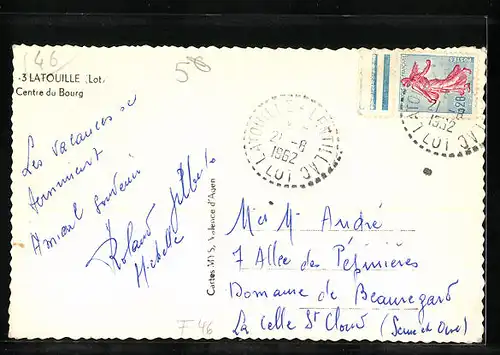 46
-3 LATOUILLE (Lot)
Centre du Bourg
58
Les vacances se
terminent
Amical Souvenir
Roland Gilberte
Michelle
Cartes MYS, Valence d'Agen
LATOUILLE-LENTILLAC LOT
21-8
1962
0,20
1962
LOT
Mr et Mme André
7 Allée des Pépinières
Domaine de Beauregard
La Celle St Cloud (Seine et Oise)
F 46